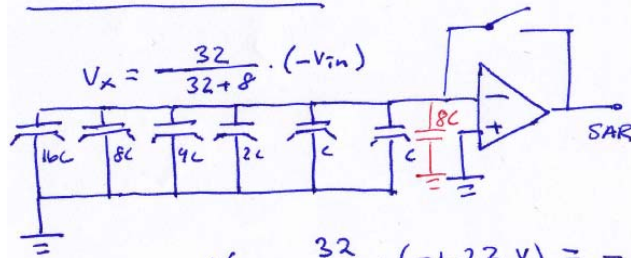 Vx = 32/(32+8) · (-Vin)
16C 8C 4C 2C C C 8C
- +
SAR
32 (-1.23 V) = -